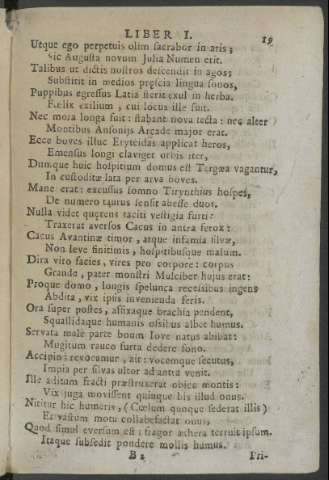 LIBER I. 19
Utque ego perpetuis olim sacrabor in aris;
Sic Augusta novum Julia Numen erit.
Talibus ut dictis nostros descendit in agos;
Substitit in medios præscia lingua sonos,
Puppibus egressus Latia stetit exul in herba.
Fælix exilium, cui locus ille fuit.
Nec mora longa fuit: stabant nova tecta: nec alter
Montibus Ansonijs Arcade major erat.
Ecce boves illuc Eryteidas applicat heros,
Emensus longi claviger orbis iter,
Dumque huic hospitium domus est Tegæa vagantur,
In custoditæ lata per arva boves.
Mane erat: excussus somno Tirynthius hospes,
De numero taurus sensit abesse duos.
Nulla videt quærens taciti vestigia furti:
Traxerat aversos Cacus in antra ferox:
Cacus Avantinæ timor, atque infamia silvæ,
Non leve finitimis, hospitibusque malum.
Dira viro facies, vires pro corpore: corpus
Grande, pater monstri Mulciber hujus erat:
Proque domo, longis spelunca recessibus ingens
Abdita, vix ipsis invenienda feris.
Ora super postes, affixaque brachia pendent,
Squallidaque humanis ossibus albet humus.
Servata male parte boum Iove natus abibat:
Mugitum rauco furta dedere sono.
Accipio: revocamur, ait: vocemque secutus,
Impia per silvas ultor ad antra venit.
Ille aditum fracti præstruxerat obice montis:
Vix juga movissent quinque bis illud onus.
Nititur hic humeris, (Cœlum quoque sederat illis)
Et vastum motu collabefactat onus,
Quod simul eversum est: fragor æthera terruit ipsum.
Itaque subsedit pondere mollis humus.
B 2 Pri-